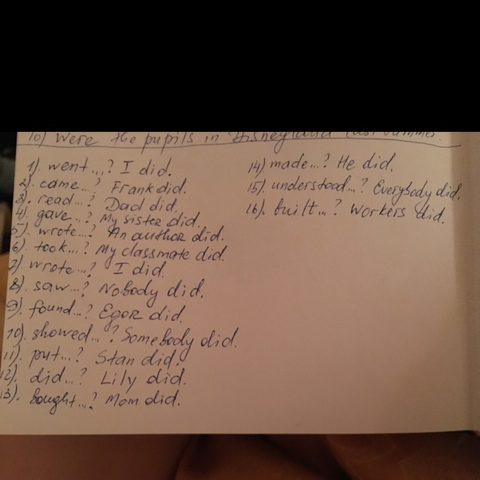 10) Were the pupils in Disneyland last summer.
1) went...? I did.
2). came...? Frank did.
3). read...? Dad did.
4). gave...? My sister did.
5). wrote...? An author did.
6). took...? My classmate did.
7) wrote...? I did.
8). saw...? Nobody did.
9). found...? Egor did.
10). showed...? Somebody did.
11). put...? Stan did.
12). did...? Lily did.
13). bought...? Mom did.
14) made...? He did.
15). understood...? Everybody did.
16). built...? Workers did.